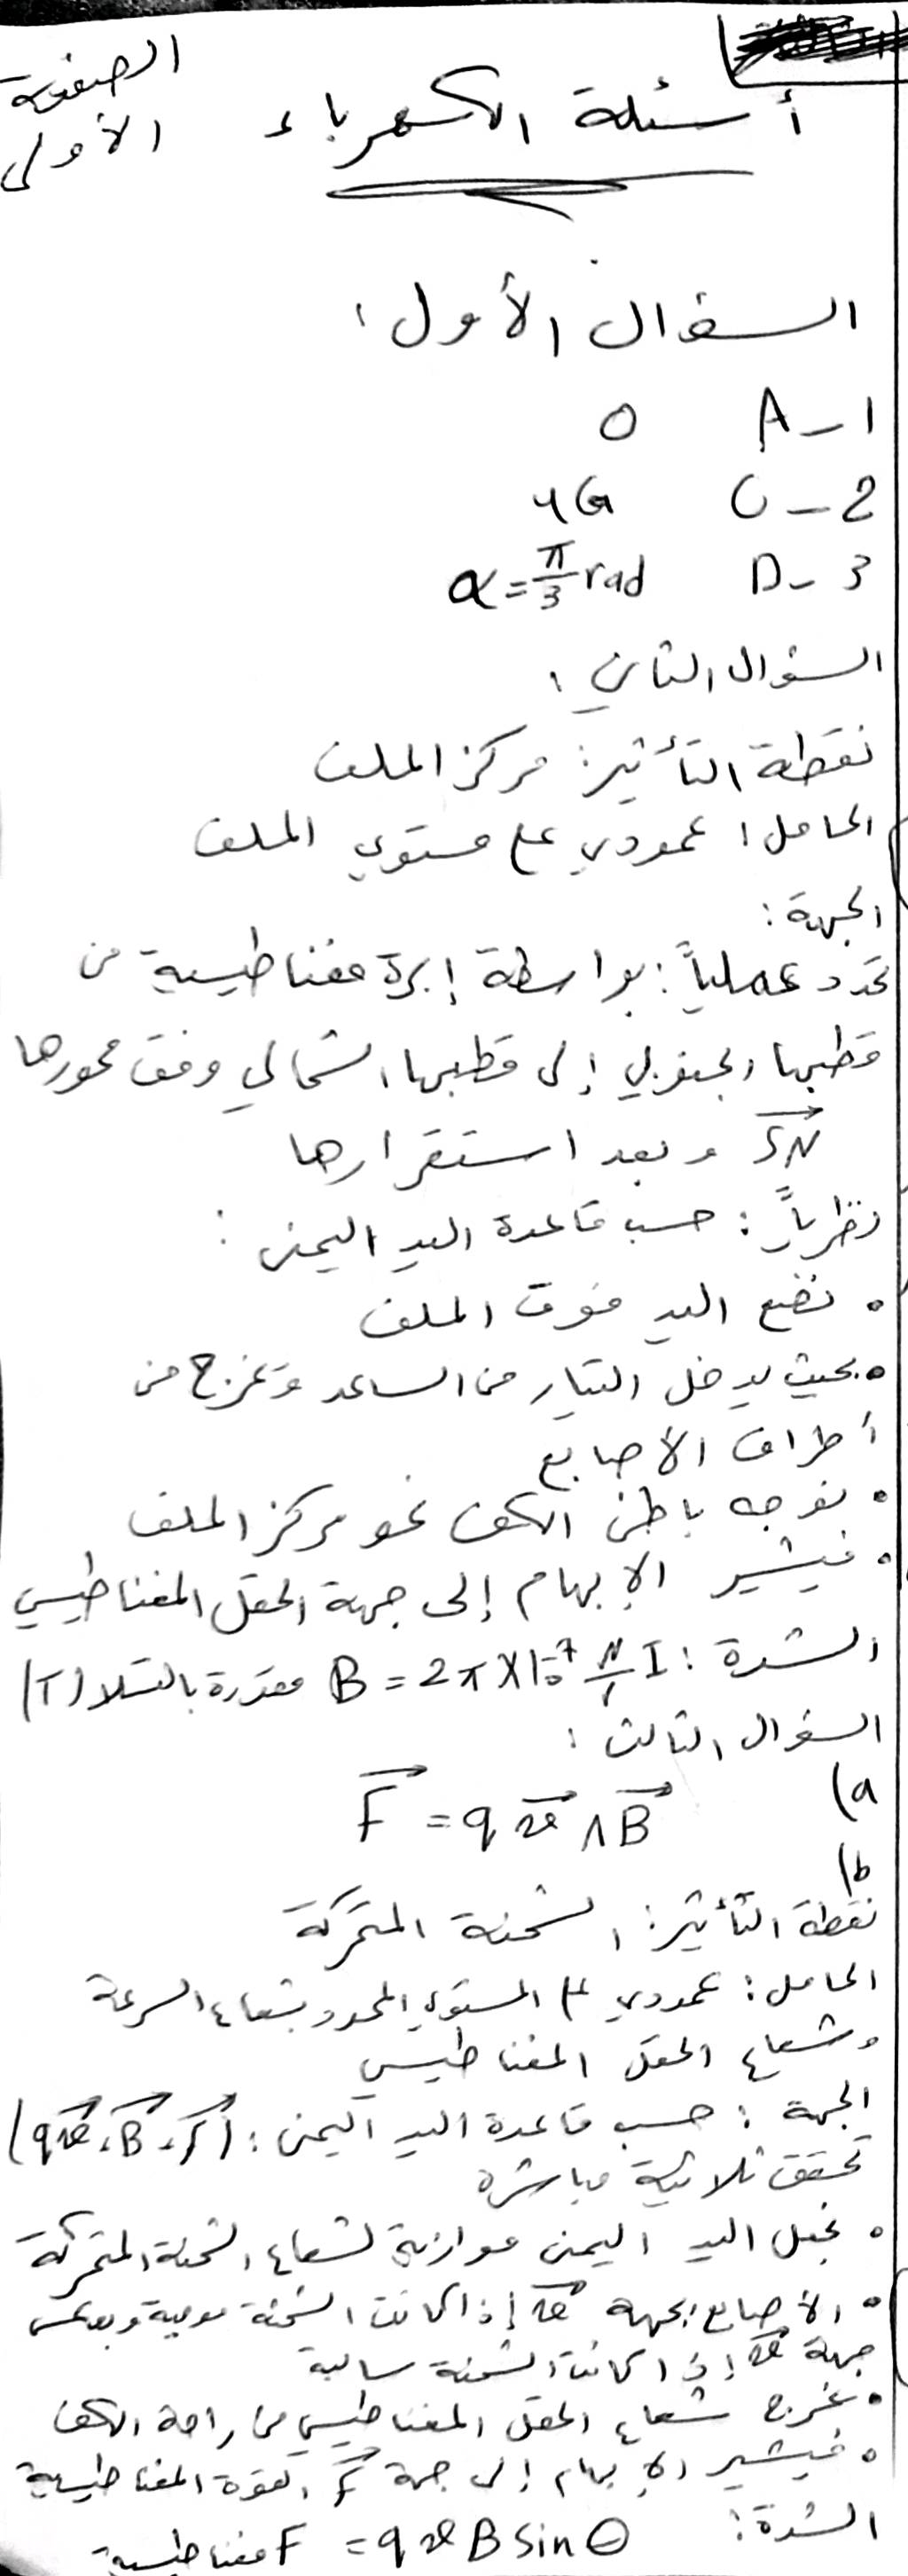 الصفحة
الأولى
أسئلة الكهرباء
السؤال الأول:
1 - A 0
2 - C 4G
3 - D α = π/3 rad
السؤال الثاني:
نقطة التأثير: مركز الملف
الحامل: عمودي على مستوي الملف
الجهة:
تحدد عملياً: بواسطة إبرة مغناطيسية من
قطبها الجنوبي إلى قطبها الشمالي وفق محورها
SN وبعد استقرارها
نظرياً: حسب قاعدة اليد اليمنى:
• نضع اليد فوق الملف
• بحيث يدخل التيار من الساعد ويخرج من
أطراف الأصابع
• نوجه باطن الكف نحو مركز الملف
• فيشير الإبهام إلى جهة الحقل المغناطيسي
الشدة: B = 2π×10⁻⁷ N/r I مقدرة بالتسلا (T)
السؤال الثالث:
a)
F = q v ∧ B
b)
نقطة التأثير: الشحنة المتحركة
الحامل: عمودي على المستوي المحدد بشعاع السرعة
وشعاع الحقل المغناطيسي
الجهة: حسب قاعدة اليد اليمنى: (qv, B, F)
تحقق ثلاثية مباشرة
• نجعل اليد اليمنى موازية لشعاع الشحنة المتحركة
• الأصابع بجهة v إذا كانت الشحنة موجبة وبعكس
جهة v إذا كانت الشحنة سالبة
• يخرج شعاع الحقل المغناطيسي من راحة الكف
• فيشير الإبهام إلى جهة F القوة المغناطيسية
الشدة: F مغناطيسية = q v B sin θ